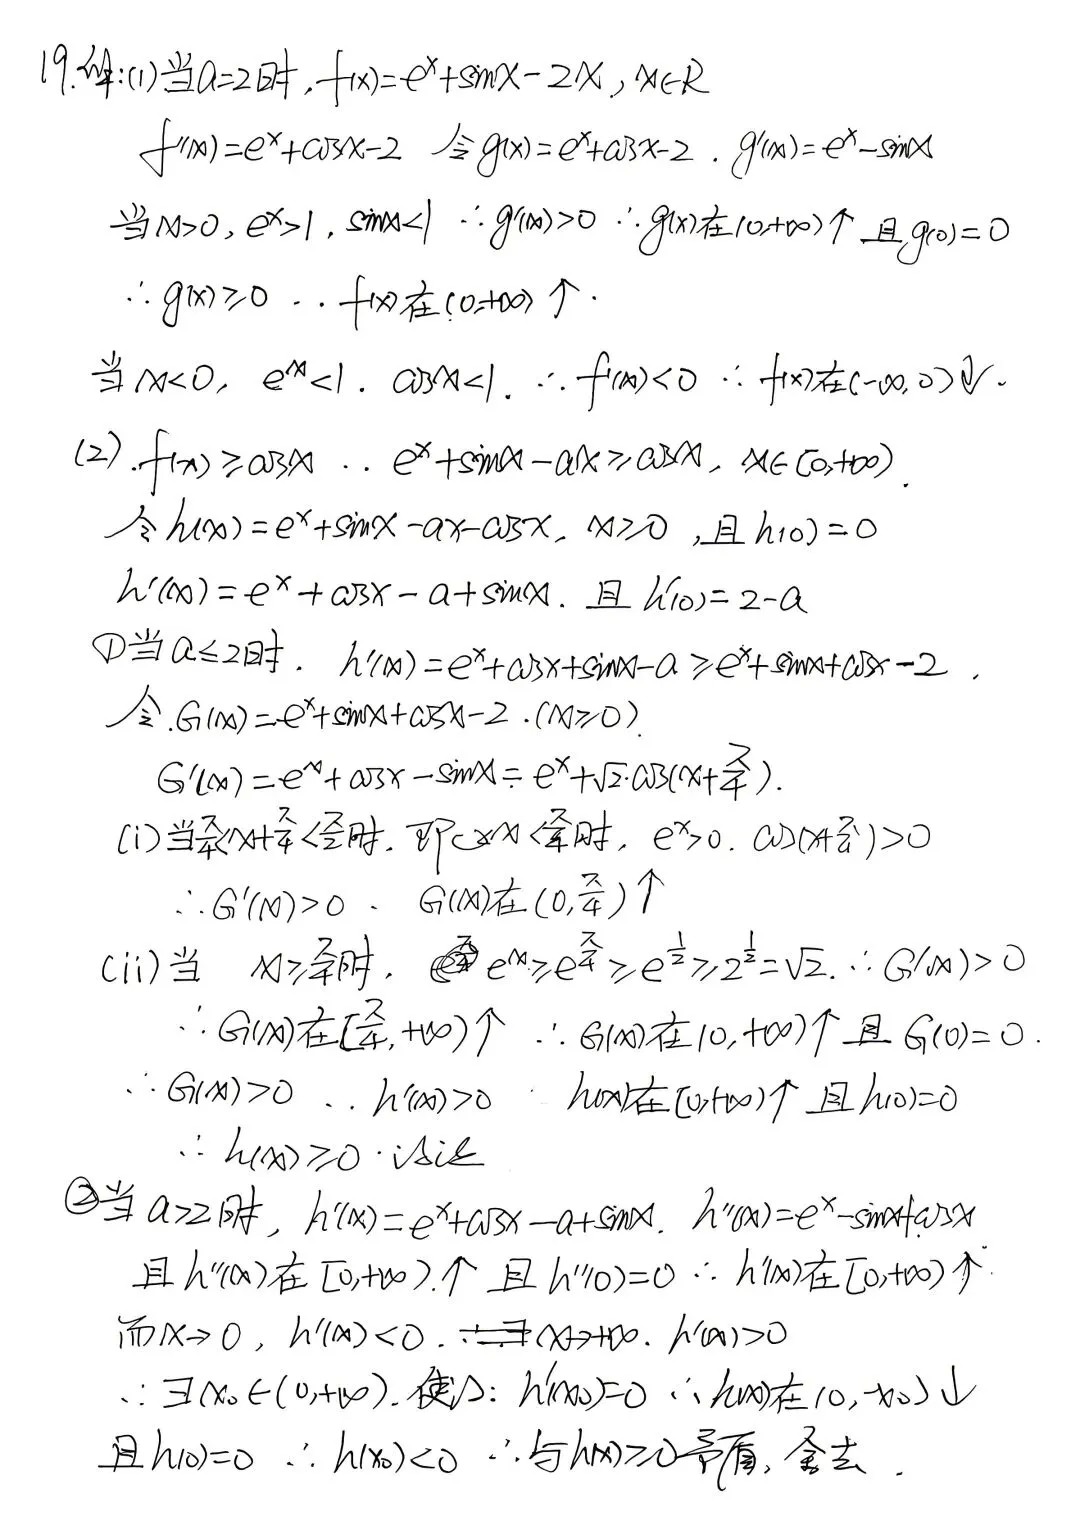 19.解:(1)当a=2时,f(x)=eˣ+sinx-2x,x∈R
f'(x)=eˣ+cosx-2 令g(x)=eˣ+cosx-2.g'(x)=eˣ-sinx
当x>0,eˣ>1,sinx<1 ∴g'(x)>0 ∴g(x)在(0,+∞)↑且g(0)=0
∴g(x)≥0 ∴f(x)在(0,+∞)↑.
当x<0, eˣ<1. cosx<1. ∴f'(x)<0 ∴f(x)在(-∞,0)↓.
(2).f(x)≥cosx ∴eˣ+sinx-ax≥cosx, x∈[0,+∞).
令h(x)=eˣ+sinx-ax-cosx, x≥0,且h(0)=0
h'(x)=eˣ+cosx-a+sinx.且h'(0)=2-a
①当a≤2时. h'(x)=eˣ+cosx+sinx-a≥eˣ+sinx+cosx-2.
令.G(x)=eˣ+sinx+cosx-2.(x≥0)
G'(x)=eˣ+cosx-sinx=eˣ+√2·cos(x+π/4).
(i)当π/4<x+π/4<π/2时.即0<x<π/4时, eˣ>0. cos(x+π/4)>0
∴G'(x)>0. G(x)在(0,π/4)↑
(ii)当 x≥π/4时, eˣ≥e^(π/4)≥e^(1/2)≥2^(1/2)=√2.∴G'(x)>0
∴G(x)在[π/4,+∞)↑ ∴G(x)在(0,+∞)↑且G(0)=0.
∴G(x)>0 ∴h'(x)>0 h(x)在[0,+∞)↑且h(0)=0
∴h(x)≥0.
②当a>2时, h'(x)=eˣ+cosx-a+sinx. h''(x)=eˣ-sinx+cosx
且h''(x)在[0,+∞).↑且h''(0)=0 ∴h'(x)在[0,+∞)↑.
而x→0, h'(x)<0. x→+∞. h'(x)>0
∴∃x₀∈(0,+∞).使得:h'(x₀)=0 ∴h(x)在(0,x₀)↓
且h(0)=0 ∴h(x₀)<0 ∴与h(x)≥0矛盾,舍去.